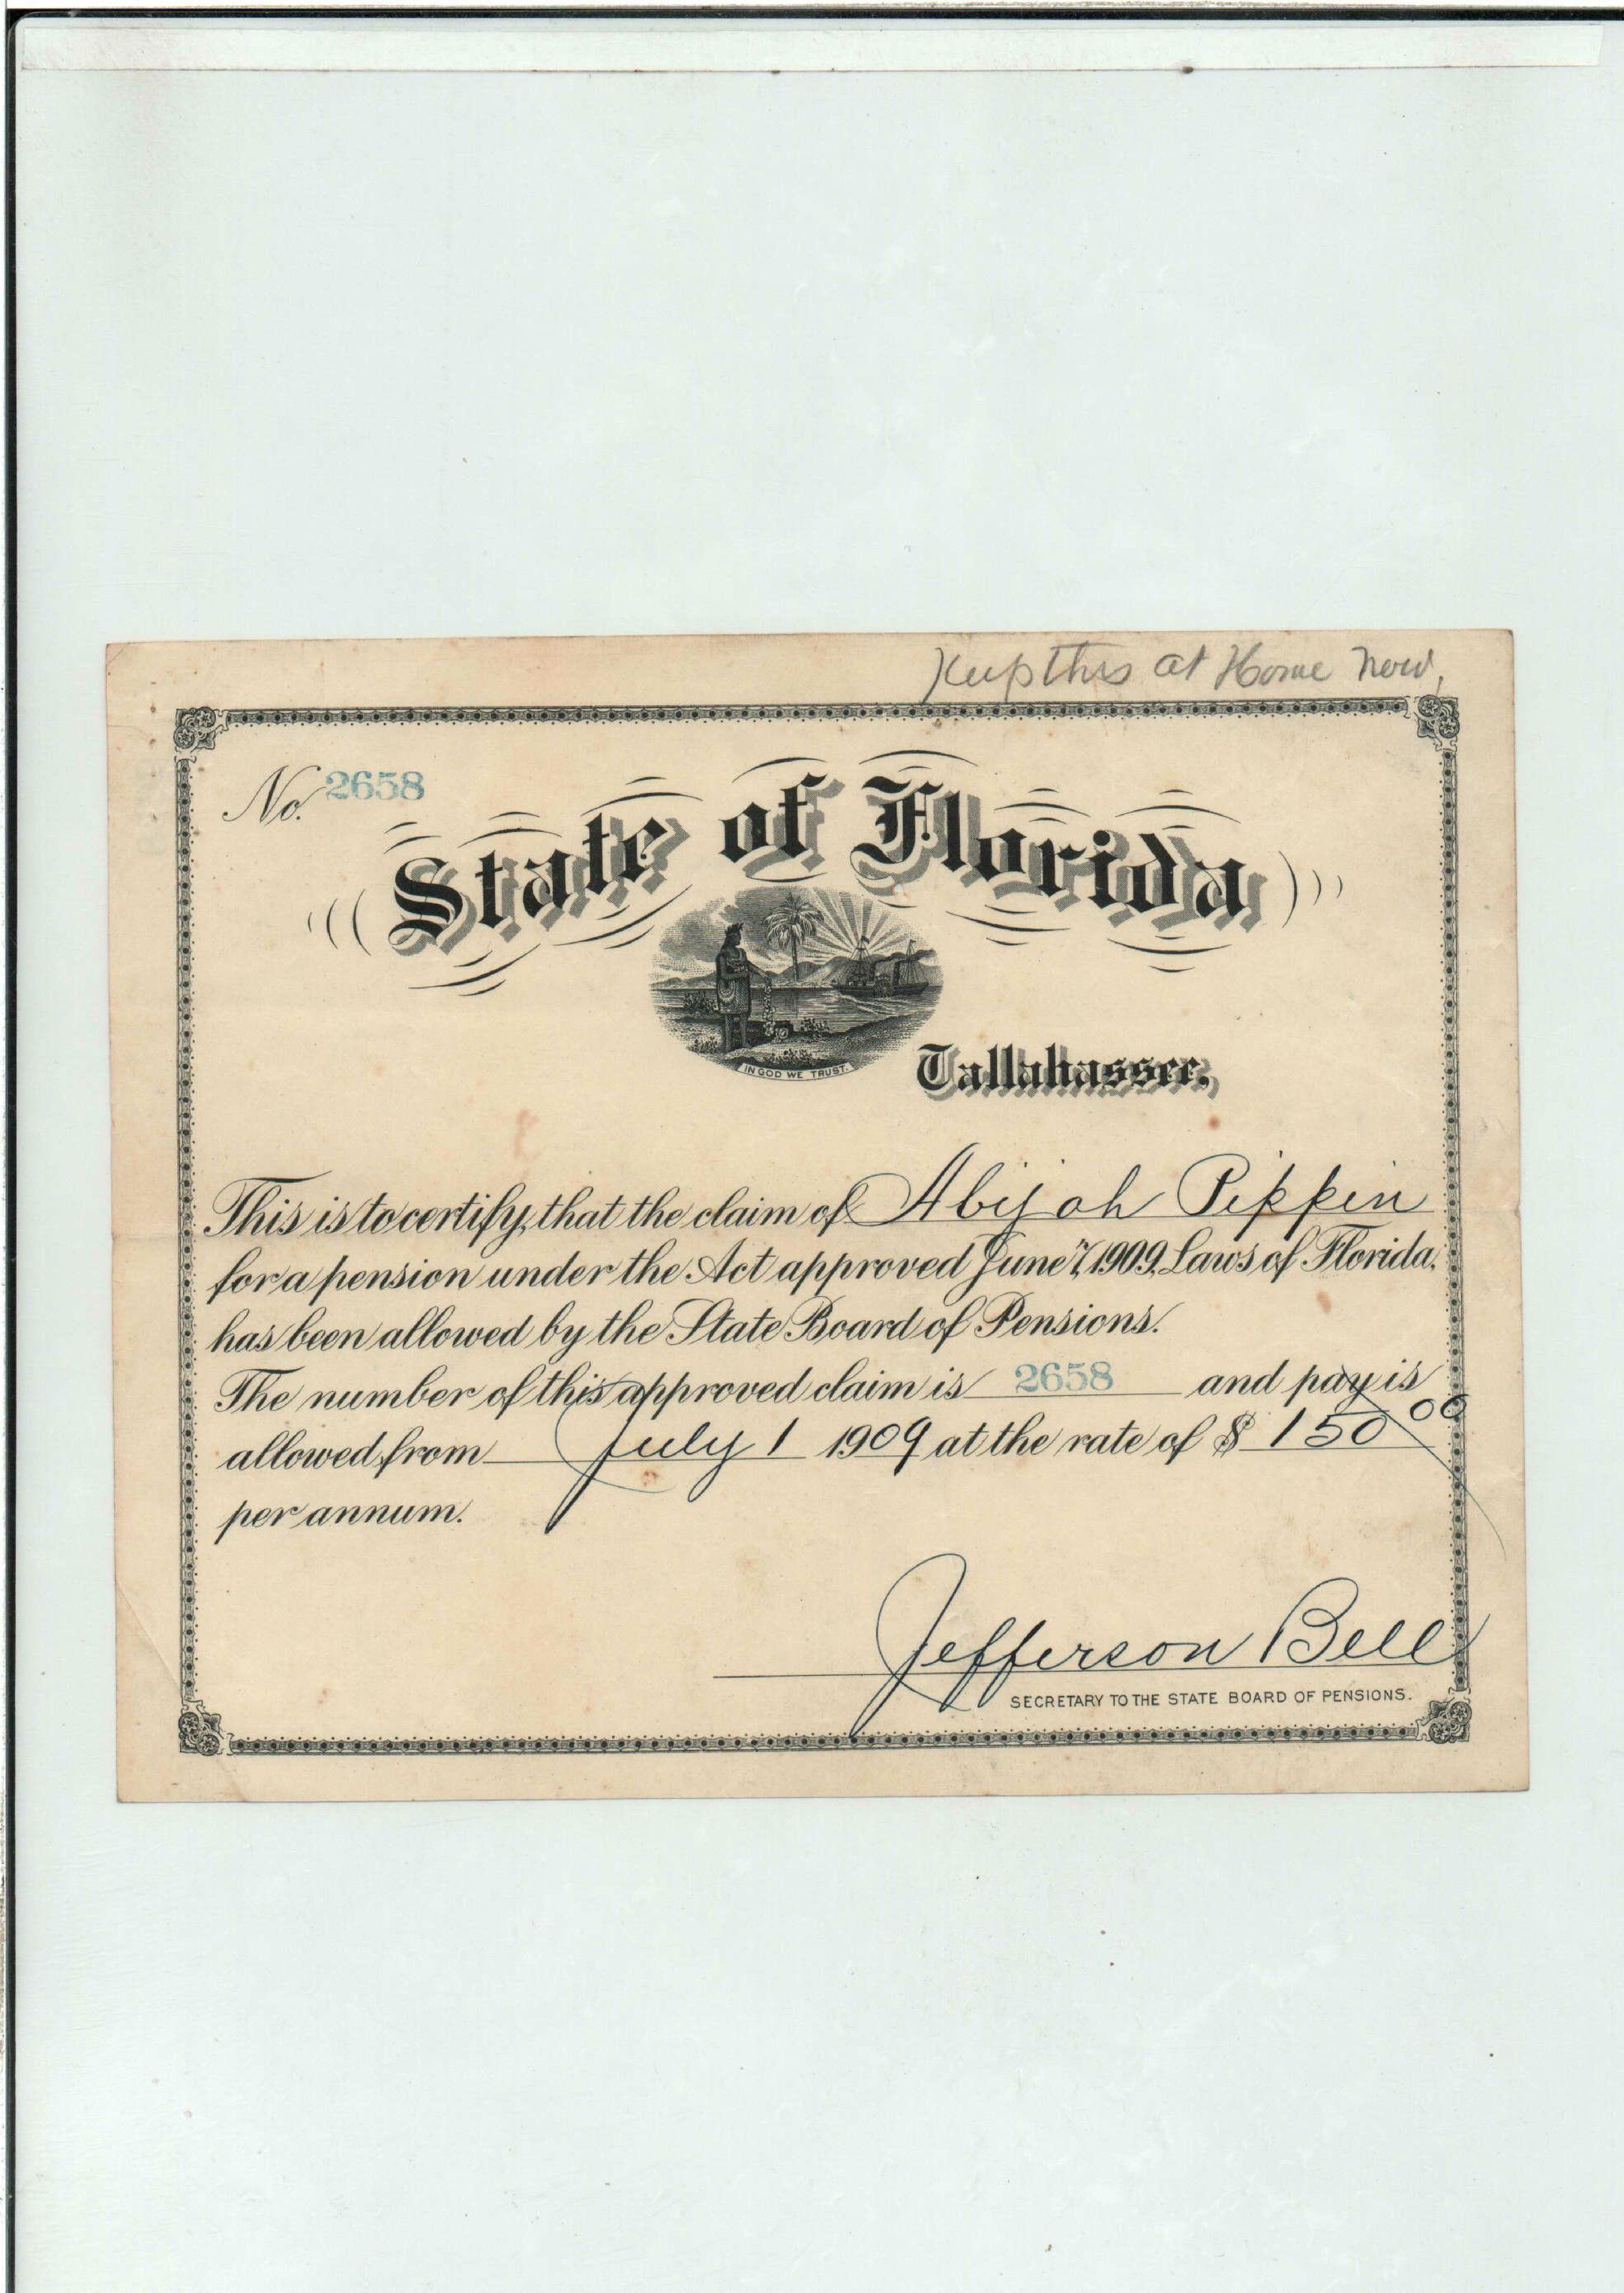 Keep this at Home now,
No. 2658
State of Florida
IN GOD WE TRUST.
Tallahassee,
This is to certify, that the claim of Abijah Pippin
for a pension under the Act approved June 7, 1909, Laws of Florida,
has been allowed by the State Board of Pensions.
The number of this approved claim is 2658 and pay is
allowed from July 1 1909 at the rate of $ 150 00
per annum.
Jefferson Bell
SECRETARY TO THE STATE BOARD OF PENSIONS.